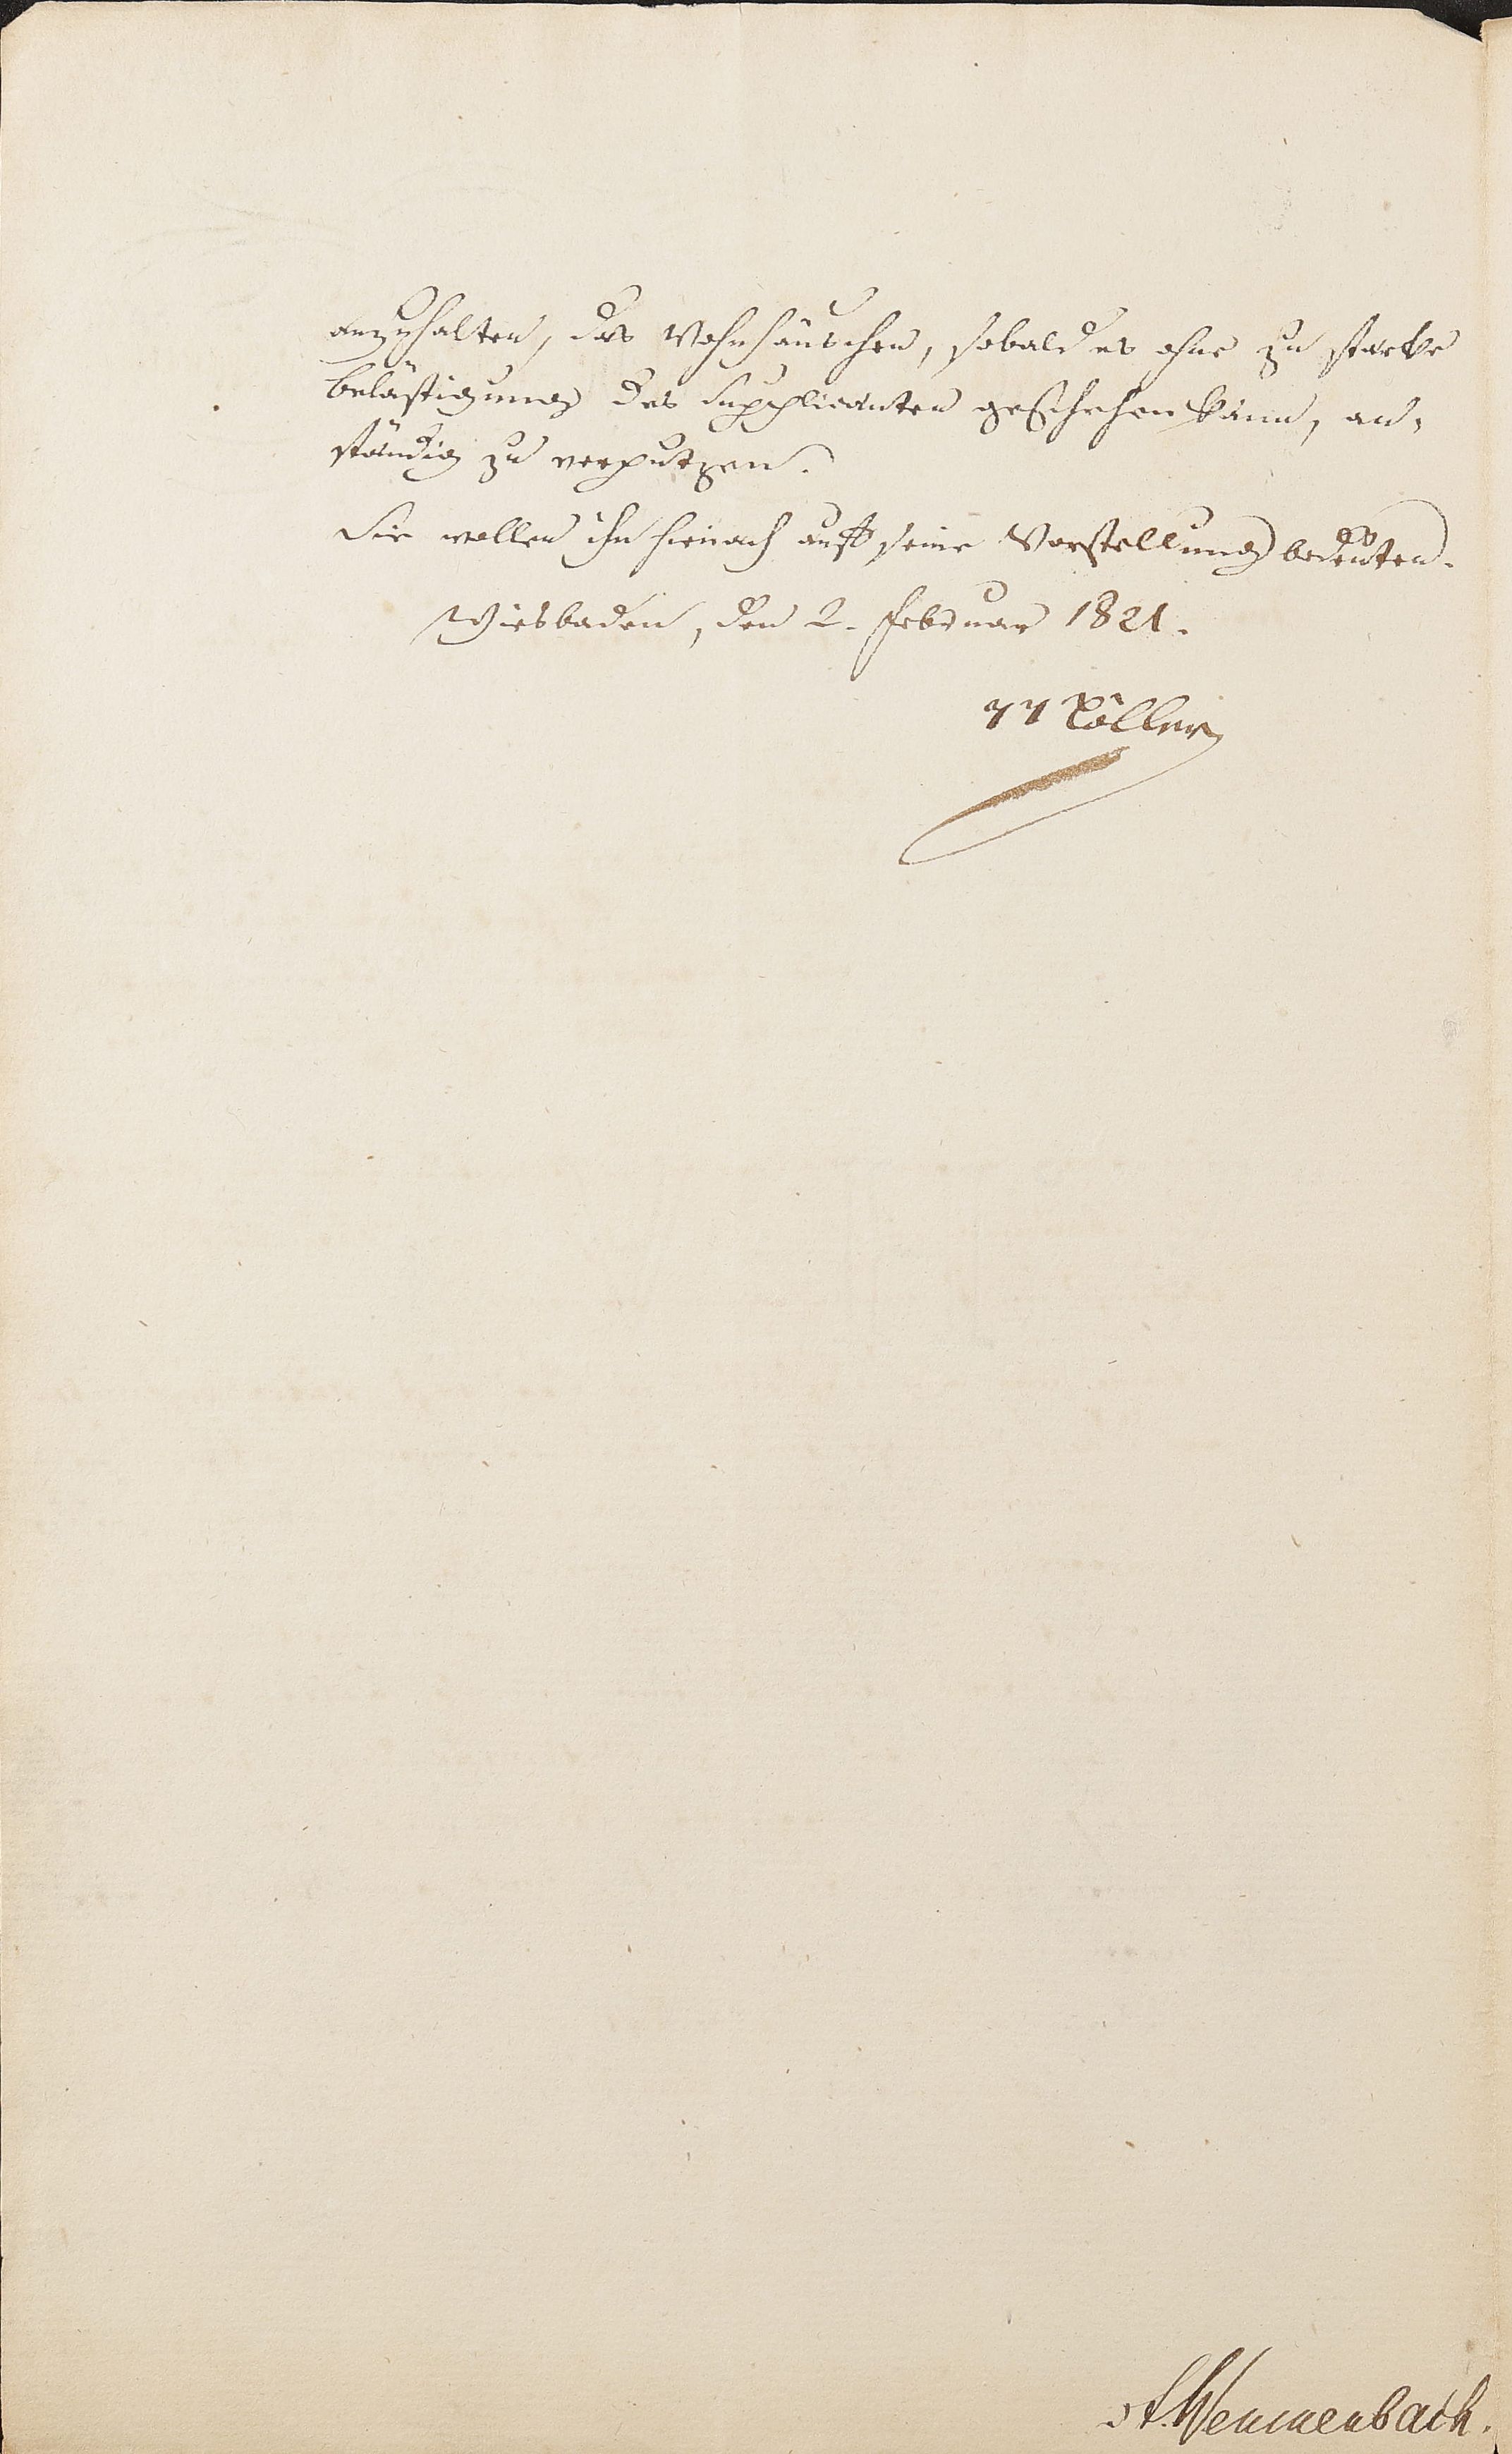 anzuhalten, das Wohnhäuschen, sobald es ohne zu starke
Belästigung des Supplicanten geschehen kann, an-
ständig zu verputzen.
Sie wollen ihn hienach auff seine Vorstellung bedeuten.
Wiesbaden, den 2. Februar 1821.
Möller
A. Wennenbach.